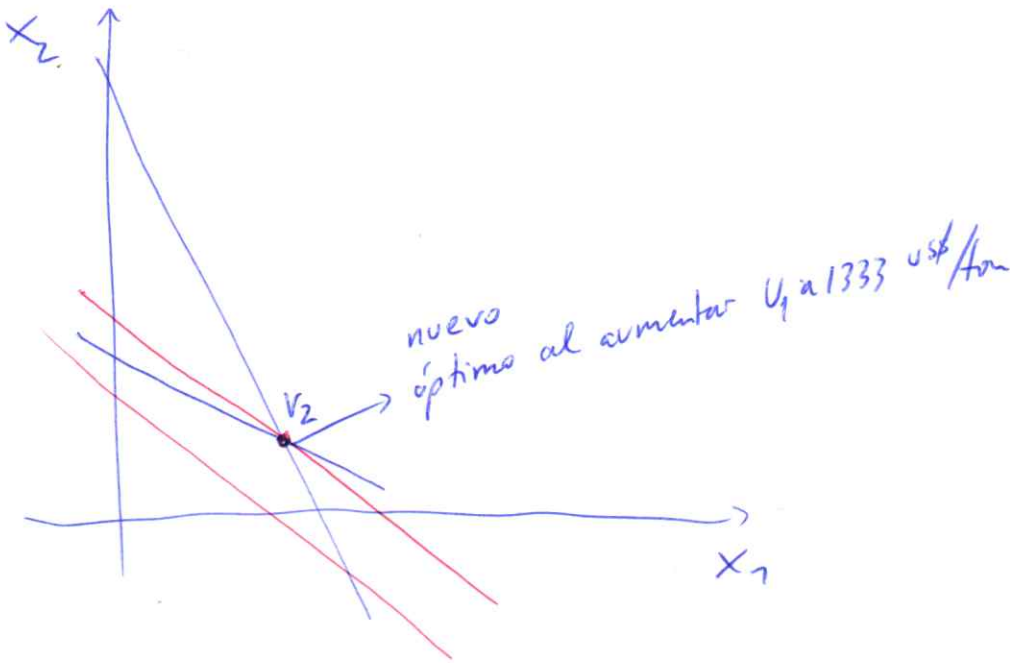 X₂
nuevo
óptimo al aumentar U₁ a 1333 us$/ton
V₂
X₁